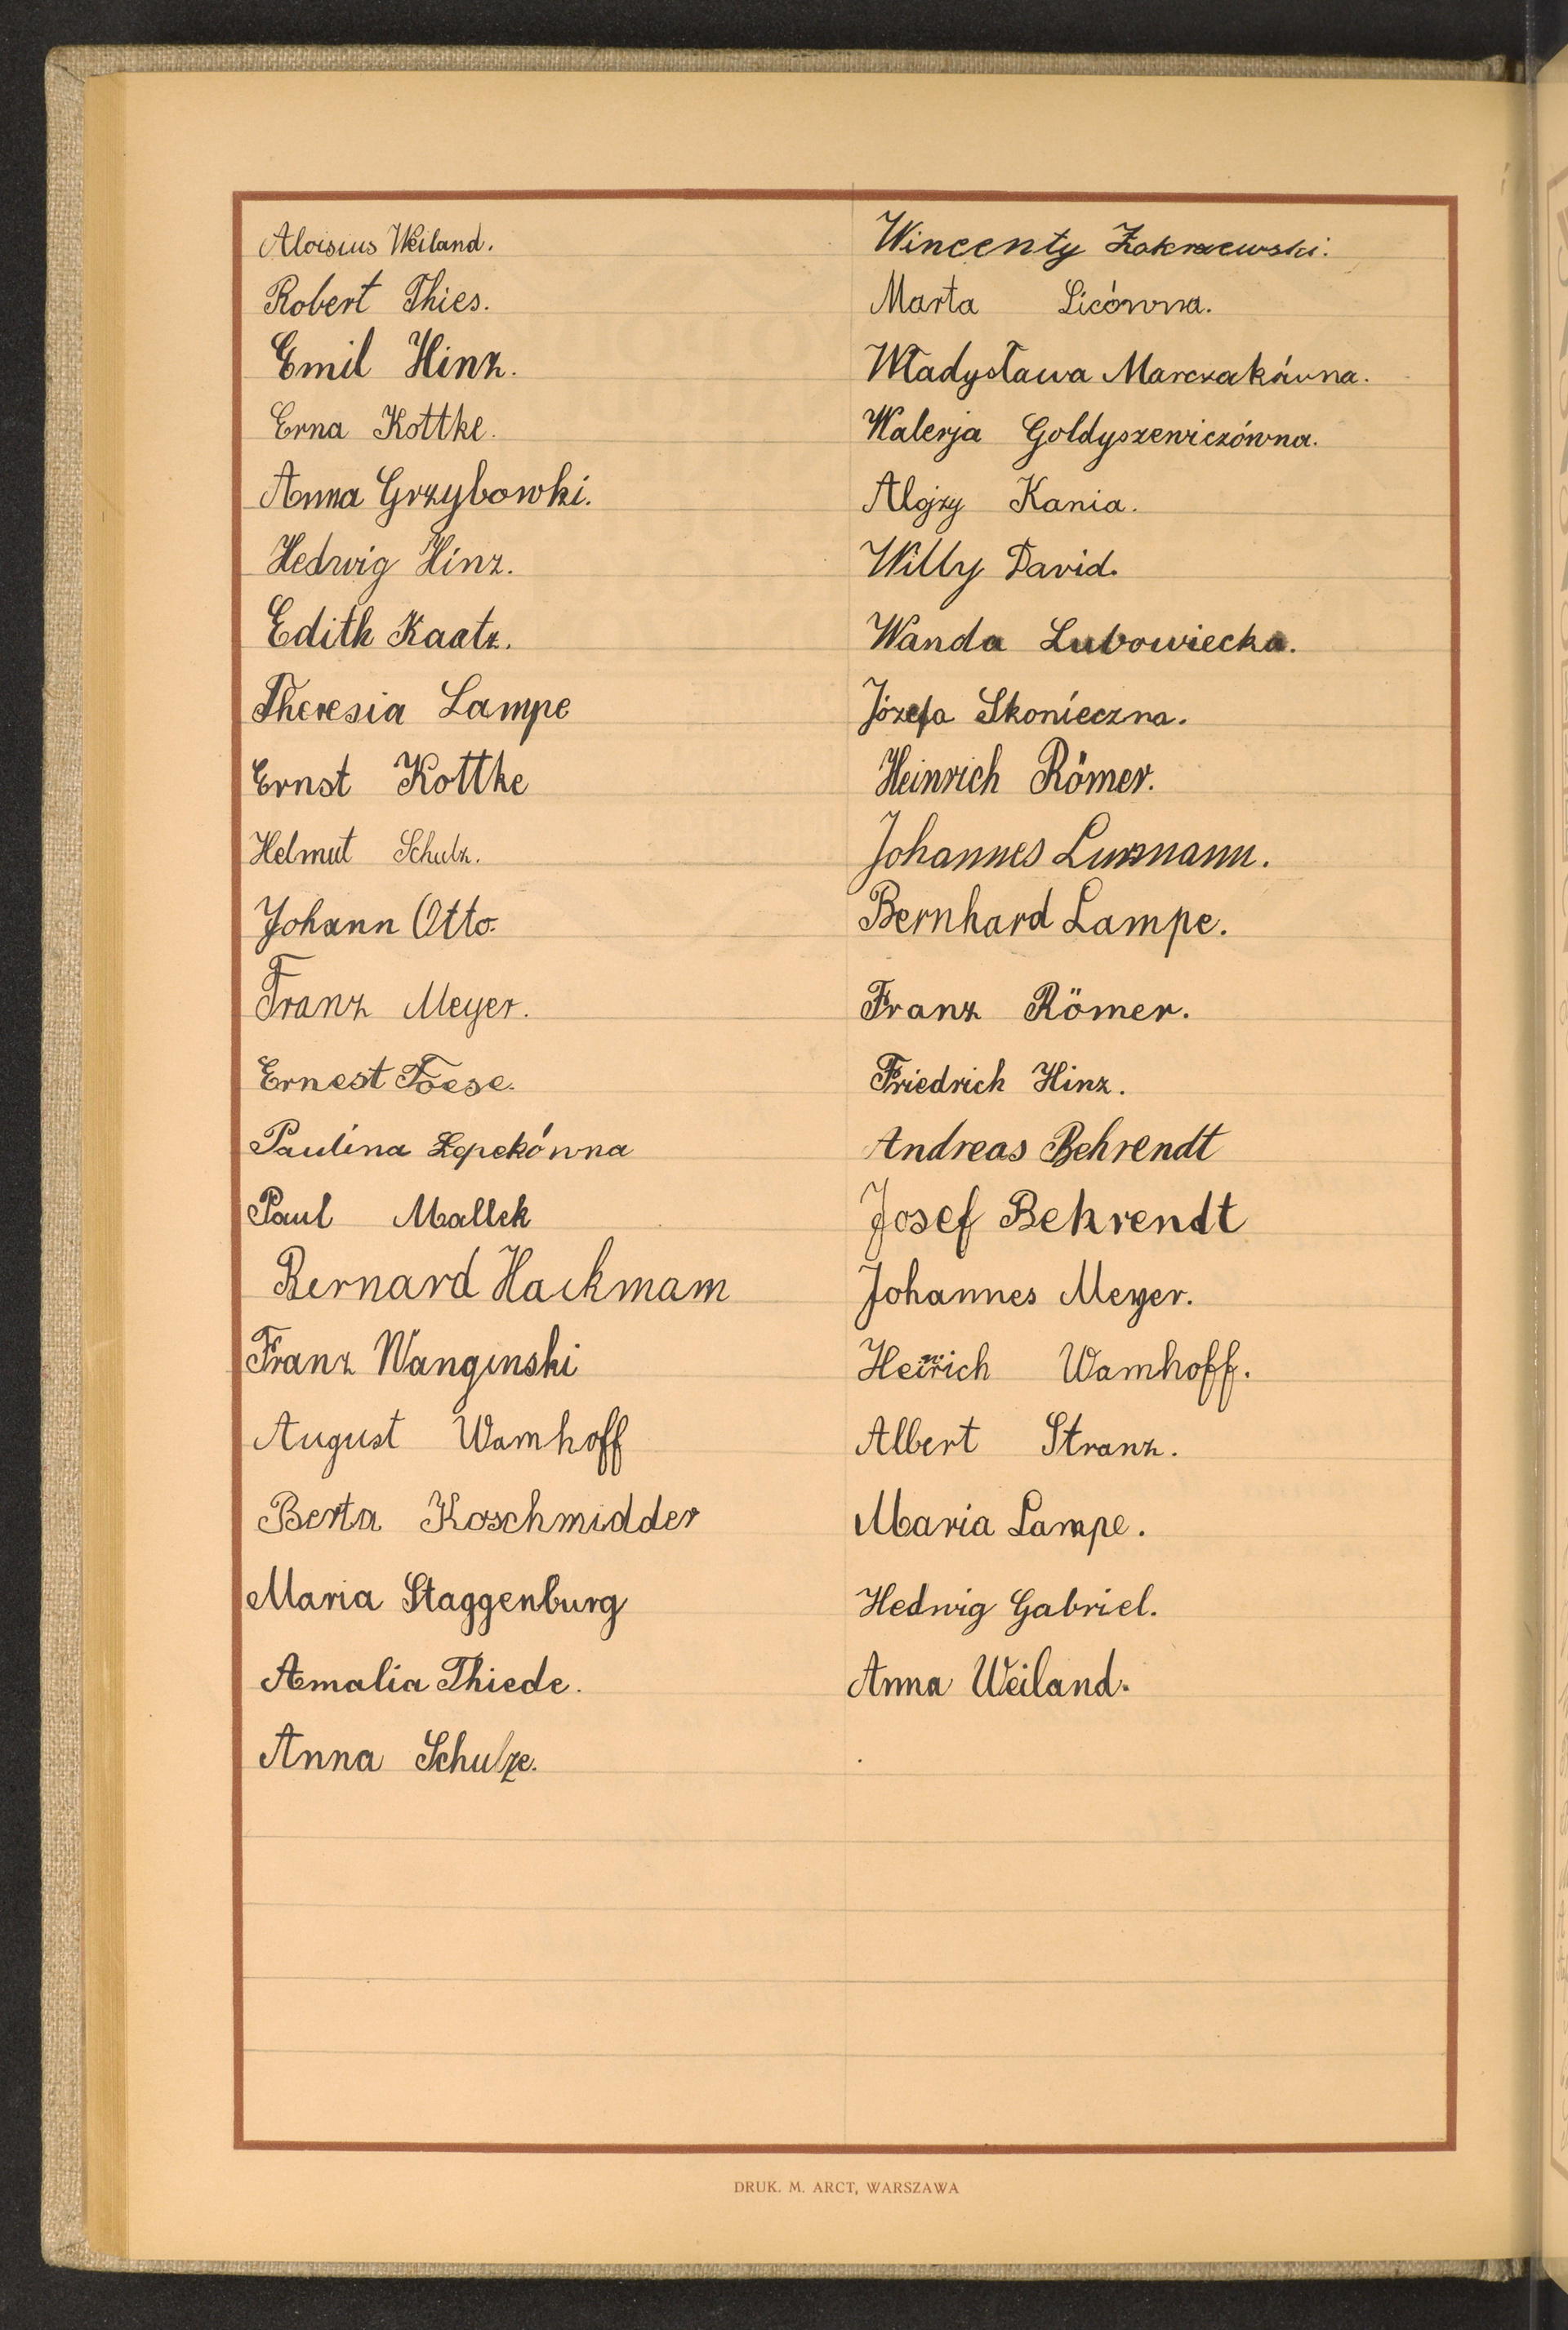 Aloisius Weiland.
Robert Thies.
Emil Hinz.
Erna Kottke.
Anna Grzybowki.
Hedwig Hinz.
Edith Kaatz.
Theresia Lampe
Ernst Kottke
Helmut Schulz.
Johann Otto.
Franz Meyer.
Ernest Foese.
Paulina Łepekówna
Paul Mallek
Bernard Hackmam
Franz Wanginski
August Wamhoff
Berta Koschmidder
Maria Staggenburg
Amalia Thiede.
Anna Schulze.
Wincenty Zakrzewski.
Marta Licówna.
Władysława Marczakówna.
Walerja Goldyszewiczówna.
Alojzy Kania.
Willy David.
Wanda Lubowiecka.
Józefa Skonieczna.
Heinrich Römer.
Johannes
Bernhard Lampe.
Franz Römer.
Friedrich Hinz.
Andreas Behrendt
Josef Behrendt
Johannes Meyer.
Heinrich Wamhoff.
Albert Stranz.
Maria Lampe.
Hedwig Gabriel.
Anna Weiland.
DRUK. M. ARCT, WARSZAWA